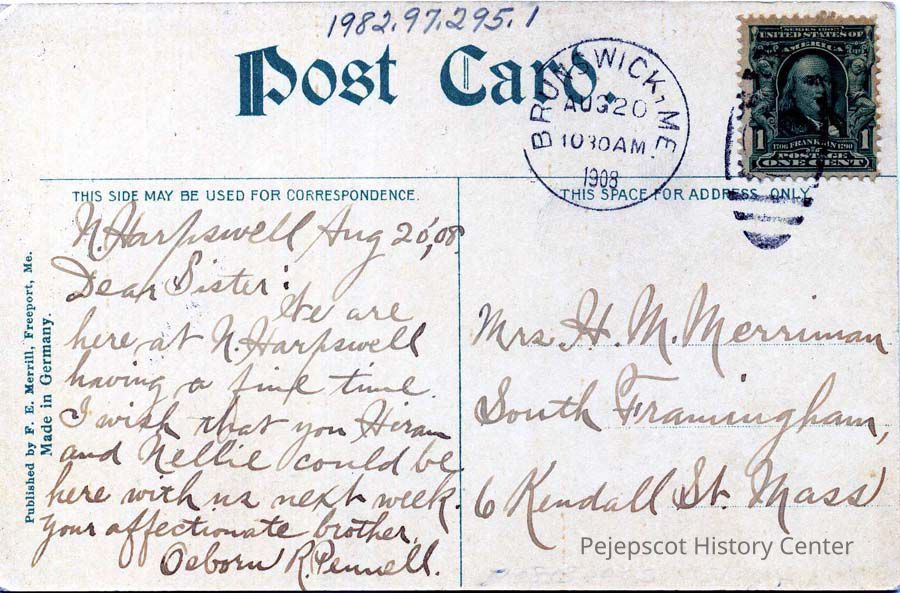 1982.97.295.1
Post Card.
BRUNSWICK, ME.
AUG 20
1030AM
1908
SERIES 1902
UNITED STATES OF
AMERICA
1 1
1706 FRANKLIN 1790
POSTAGE
ONE CENT
THIS SIDE MAY BE USED FOR CORRESPONDENCE.
THIS SPACE FOR ADDRESS ONLY
Published by F. E. Merrill, Freeport, Me.
Made in Germany.
N. Harpswell Aug 20,'08
Dear Sister:
We are
here at N. Harpswell
having a fine time.
I wish that you Hiram
and Nellie could be
here with us next week.
Your affectionate brother.
Osborn R. Pennell.
Mrs. H. M. Merriman
South Framingham,
6 Kendall St. Mass
Pejepscot History Center